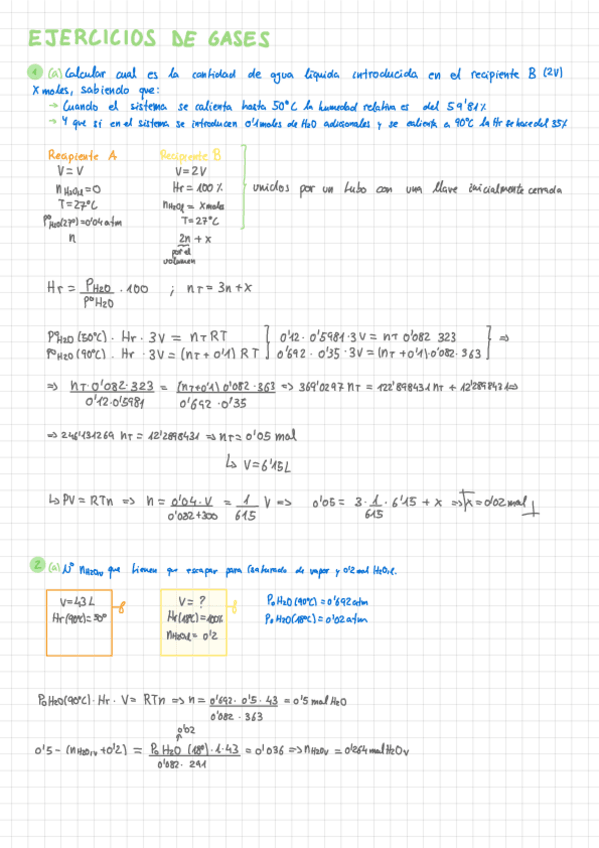 EJERCICIOS DE GASES
1 (a) Calcular cual es la cantidad de agua líquida introducida en el recipiente B (2V)
X moles, sabiendo que:
→ Cuando el sistema se calienta hasta 50°C la humedad relativa es del 59'81%
→ Y que si en el sistema se introducen 0'1 moles de H2O adicionales y se calienta a 90°C la Hr se hace del 35%
Recipiente A Recipiente B
V=V V=2V
nH2Ol=0 Hr=100%
T=27°C nH2Ol= Xmoles
P°H2O(27°)=0'04atm T=27°C
n 2n + x
por el
volumen
unidos por un tubo con una llave inicialmente cerrada
Hr = PH2O/P°H2O · 100 ; nT = 3n+x
P°H2O (50°C) · Hr · 3V = nT RT ] 0'12 · 0'5981 · 3V = nT 0'082 323 ] ⇒
P°H2O (90°C) · Hr · 3V = (nT + 0'1) RT ] 0'692 · 0'35 · 3V = (nT + 0'1) · 0'082 · 363
⇒ nT · 0'082 · 323 / 0'12 · 0'5981 = (nT+0'1) 0'082 · 363 / 0'692 · 0'35 ⇒ 369'0297 nT = 122'898431 nT + 12'2898431 ⇒
⇒ 246'131269 nT = 12'2898431 ⇒ nT = 0'05 mol
↳ V=6'15L
↳ PV = RTn ⇒ n = 0'04 · V / 0'082+300 = 1/615 V ⇒ 0'05 = 3 · 1/615 · 6'15 + x ⇒ x = 0'02 mol
2 (a) N° nH2Ov que tienen que escapar para (saturado de vapor y 0'2 mol H2Ol.
V=43L V= ? P°H2O (90°C) = 0'692atm
Hr(90°C)=50° Hr(18°C)=100% P°H2O (18°C) = 0'02 atm
nH2Ol = 0'2
P°H2O(90°C) · Hr · V = RTn ⇒ n = 0'692 · 0'5 · 43 / 0'082 · 363 = 0'5 mol H2O
0'02
0'5 - (nH2Ov + 0'2) = P°H2O (18°) · 1 · 43 / 0'082 · 291 = 0'036 ⇒ nH2Ov = 0'264 mol H2Ov